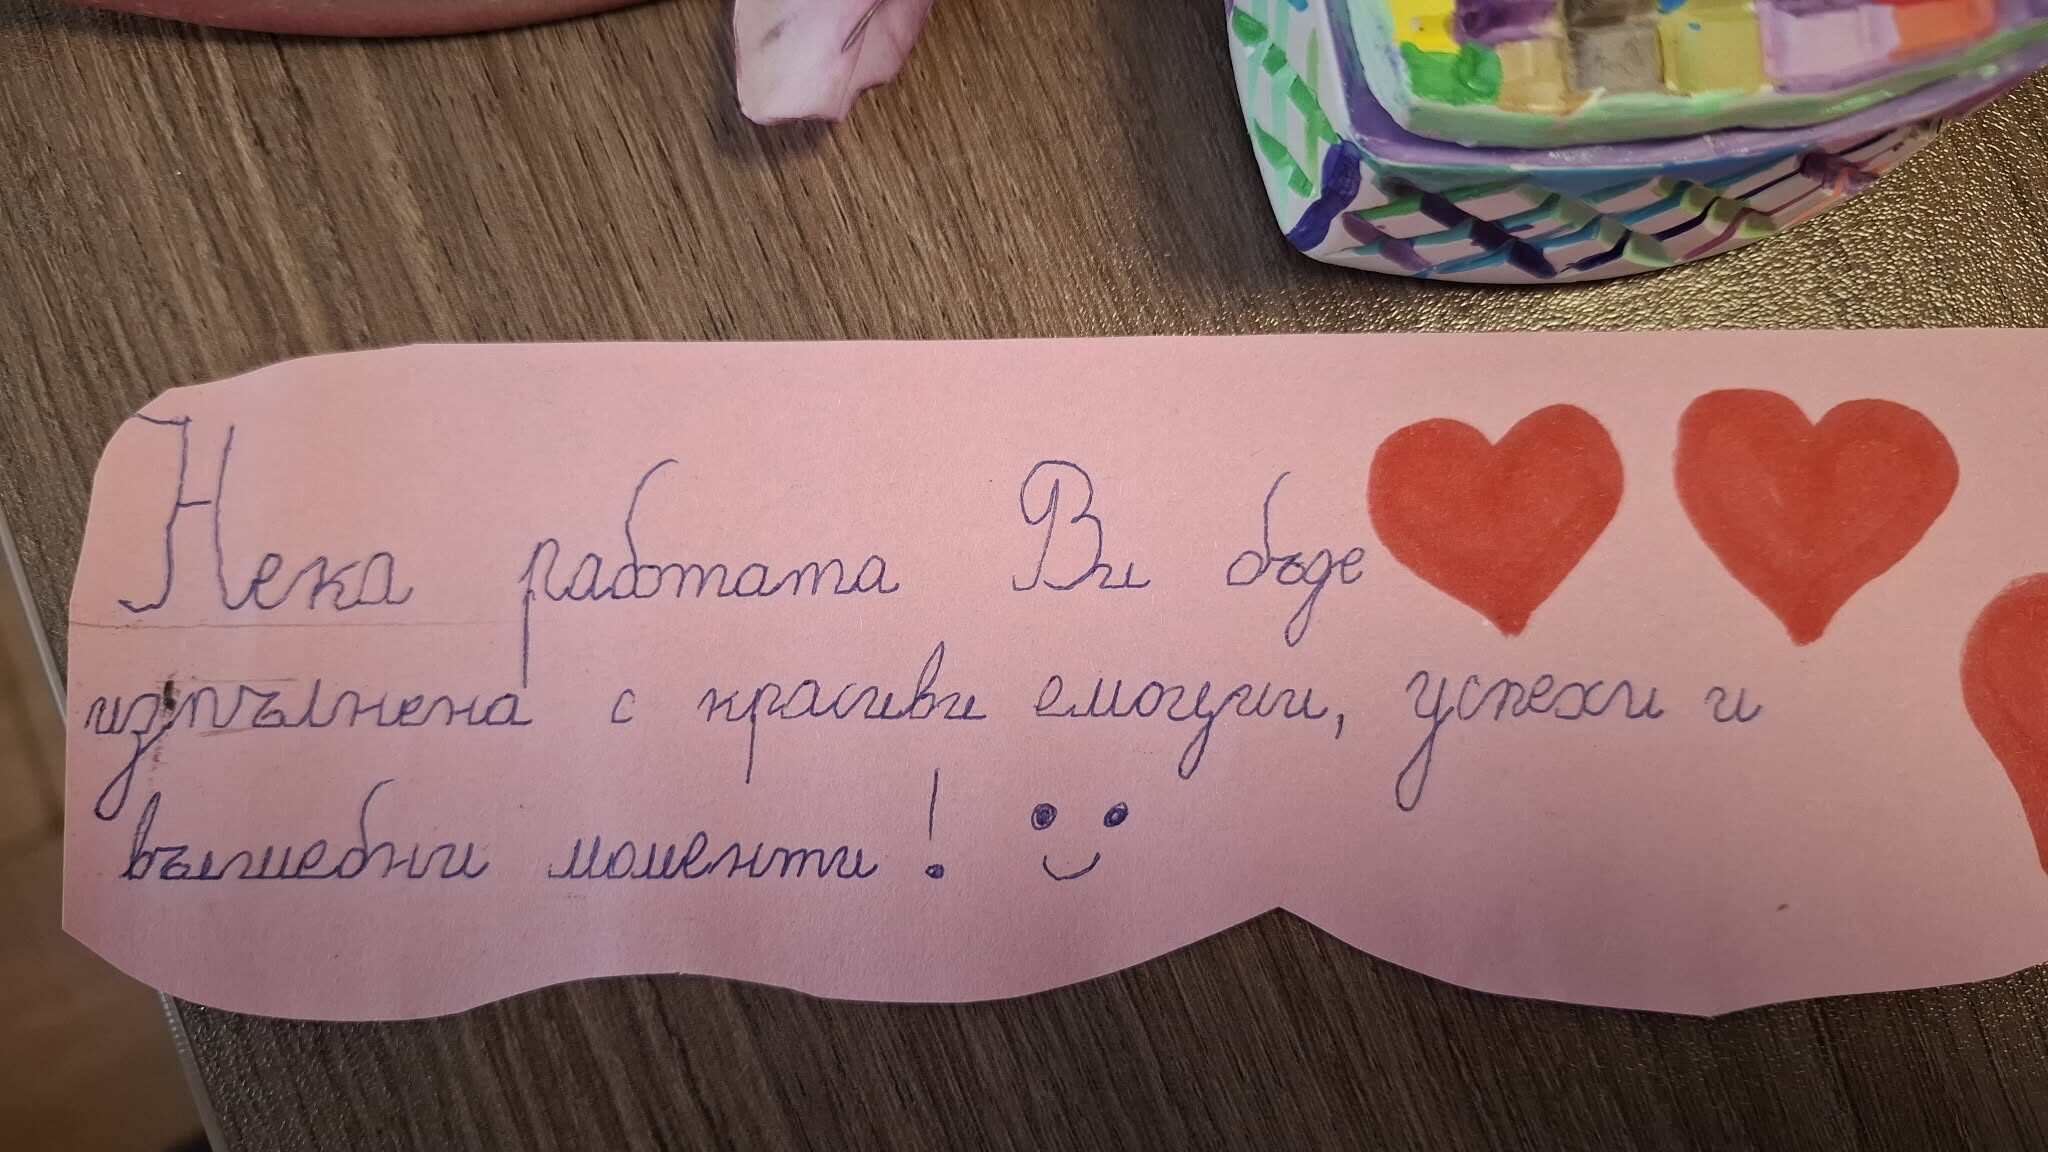 Нека работата Ви бъде
изпълнена с красиви емоции, успехи и
вълшебни моменти!